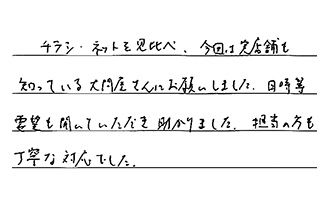 チラシ・ネットを見比べ、今回は実店舗も
知っている大問屋さんにお願いしました。日時等
要望も聞いていただき助かりました。担当の方も
丁寧な対応でした。